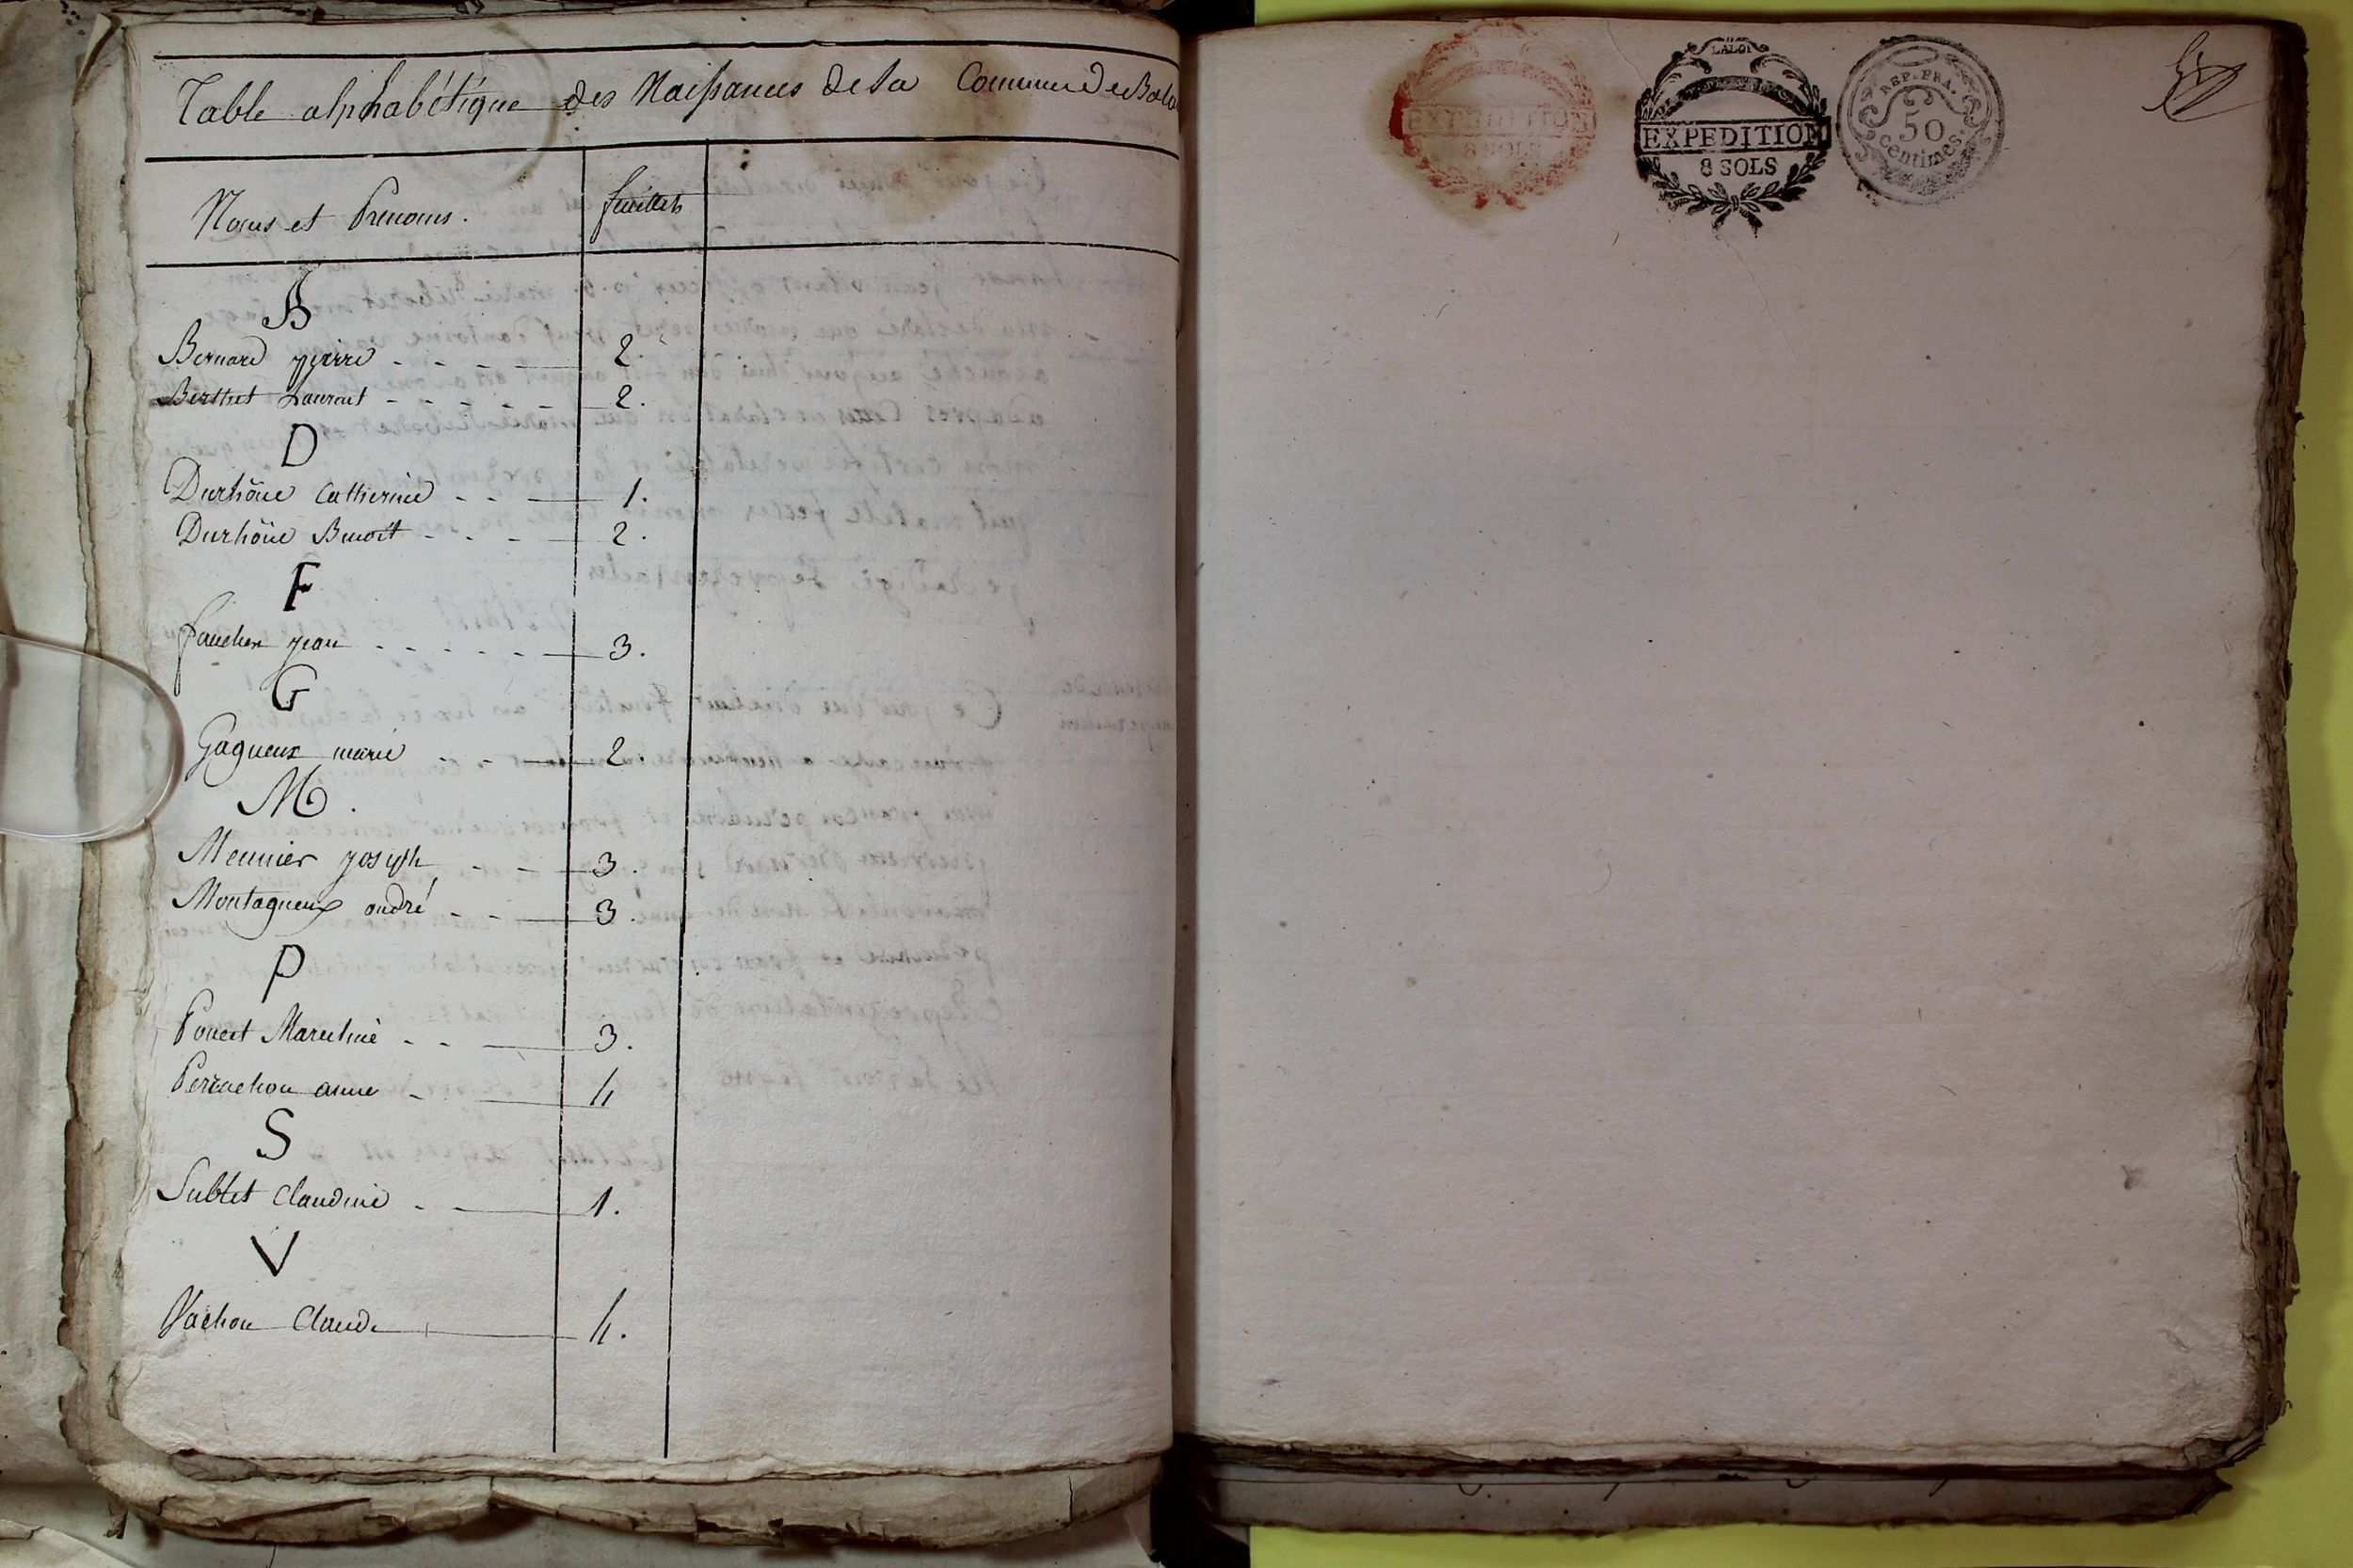 Table alphabétique des Naissances de la Commune de
Noms et Prenoms.
feuillets
B
Bernard pierre - - - - 2
Berthet Laurent - - - - - 2.
D
Durhône Catherine - - - 1.
Durhône Benoit - - - 2.
F
faucher jean - - - - - - 3.
G
Gagneux marie - - - 2
M.
Meunier joseph - - - 3.
Montagneux andré - - - 3.
P
Poncet - - 3.
Perrachon anne - 4
S
Sublet Claudine - - 1.
V
Vachon Claude 4.
EXPEDITION
8 SOLS
LA LOI
EXPEDITION
8 SOLS
REP. FRA.
50
centimes.